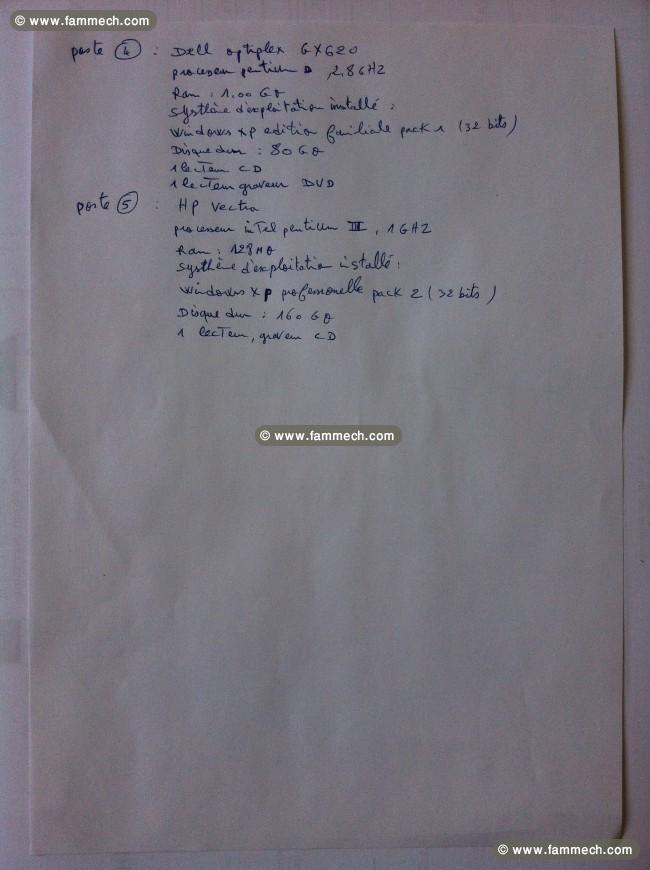 © www.fammech.com
poste 4 : Dell optiplex GX620
processeur pentium D, 2,8GHZ
Ram : 1.00 GO
Systhème d'exploitation installé :
Windows xp edition familiale pack 1 (32 bits)
Disque dur : 80 GO
1 lecteur CD
1 lecteur graveur DVD
poste 5 : HP Vectra
processeur intel pentium III, 1 GHZ
Ram : 128 MO
Systhème d'exploitation installé :
Windows xp professionelle pack 2 (32 bits)
Disque dur : 160 GO
1 lecteur, graveur CD
© www.fammech.com
© www.fammech.com